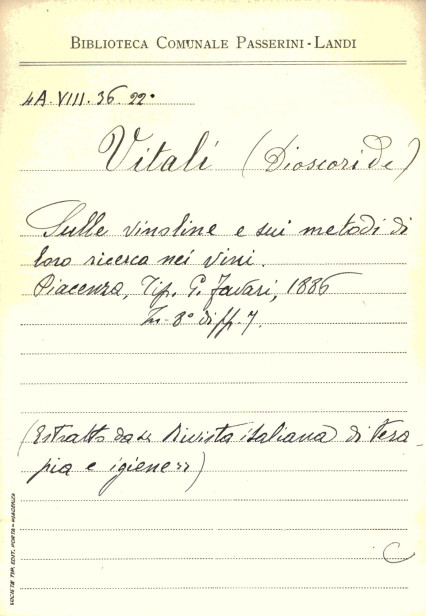 BIBLIOTECA COMUNALE PASSERINI-LANDI
4A.VIII.36.22°
Vitali (Dioscoride)
Sulle vinoline e sui metodi di
loro ricerca nei vini.
Piacenza, Tip. G. Favari, 1886
In-8° di ff. 7.
(Estratto da "Rivista italiana di tera-
pia e igiene")
C
SOCIETÀ TIP. EDIT. PORTA - PIACENZA